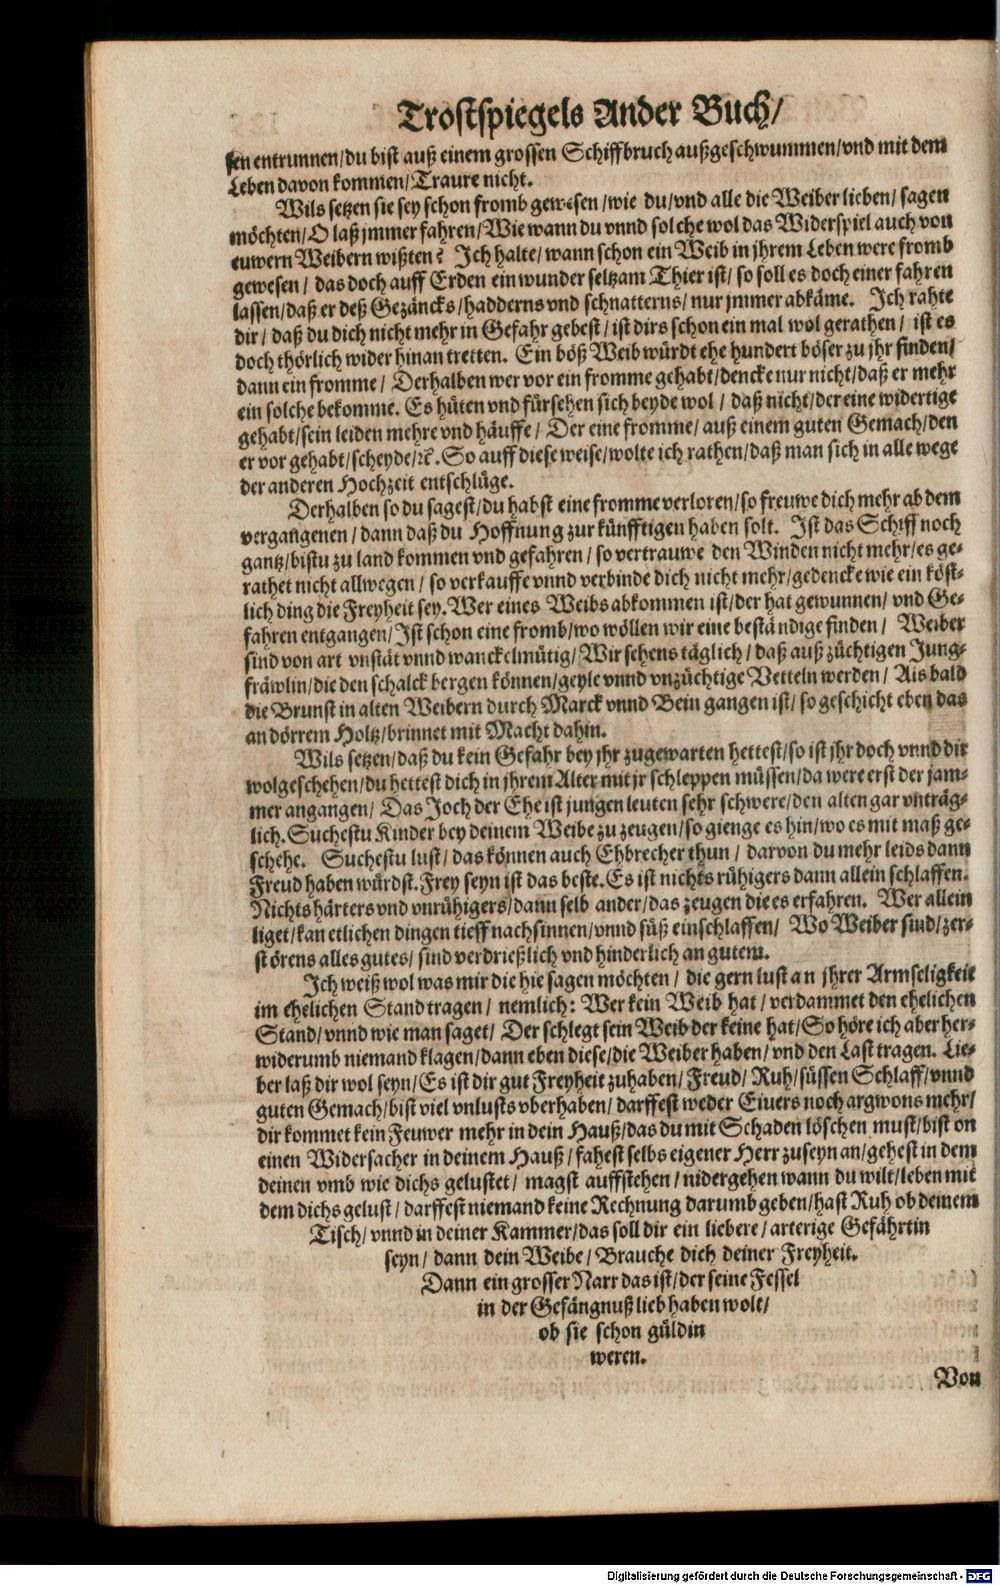 Trostspiegels Ander Buch/
sen entrunnen/du bist auß einem grossen Schiffbruch außgeschwummen/vnd mit dem
Leben davon kommen/Traure nicht.
Wils setzen sie sey schon fromb gewesen/wie du/vnd alle die Weiber lieben/sagen
möchten/O laß jmmer fahren/Wie wann du vnnd solche wol das Widerspiel auch von
euwern Weibern wißten? Ich halte/wann schon ein Weib in jhrem Leben were fromb
gewesen/das doch auff Erden ein wunder seltzam Thier ist/so soll es doch einer fahren
lassen/daß er deß Gezäncks/hadderns vnd schnatterns/nur jmmer abkäme. Ich rahte
dir/daß du dich nicht mehr in Gefahr gebest/ist dirs schon ein mal wol gerathen/ist es
doch thörlich wider hinan tretten. Ein böß Weib würdt ehe hundert böser zu jhr finden/
dann ein fromme/Derhalben wer vor ein fromme gehabt/dencke nur nicht/daß er mehr
ein solche bekomme. Es hüten vnd fürsehen sich beyde wol/daß nicht/der eine widertige
gehabt/sein leiden mehre vnd häuffe/Der eine fromme/auß einem guten Gemach/den
er vor gehabt/scheyde/ꝛc. So auff diese weise/wolte ich rathen/daß man sich in alle wege
der anderen Hochzeit entschlüge.
Derhalben so du sagest/du habst eine fromme verloren/so freuwe dich mehr ab dem
vergangenen/dann daß du Hoffnung zur künfftigen haben solt. Ist das Schiff noch
gantz/bistu zu land kommen vnd gefahren/so vertrauwe den Winden nicht mehr/es ge-
rathet nicht allwegen/so verkauffe vnnd verbinde dich nicht mehr/gedencke wie ein köst-
lich ding die Freyheit sey. Wer eines Weibs abkommen ist/der hat gewunnen/vnd Ge-
fahren entgangen/Ist schon eine fromb/wo wöllen wir eine beständige finden/Weiber
sind von art vnstät vnnd wanckelmütig/Wir sehens täglich/daß auß züchtigen Jung-
fräwlin/die den schalck bergen können/geyle vnnd vnzüchtige Vetteln werden/Als bald
die Brunst in alten Weibern durch Marck vnnd Bein gangen ist/so geschicht eben das
an dörrem Holtz/brinnet mit Macht dahin.
Wils setzen/daß du kein Gefahr bey jhr zugewarten hettest/so ist jhr doch vnnd dir
wolgeschehen/du hettest dich in jhrem Alter mit jr schleppen müssen/da were erst der jam-
mer angangen/Das Joch der Ehe ist jungen leuten sehr schwere/den alten gar vnträg-
lich. Suchestu Kinder bey deinem Weibe zu zeugen/so gienge es hin/wo es mit maß ge-
schehe. Suchestu lust/das können auch Ehbrecher thun/darvon du mehr leids dann
Freud haben würdst. Frey seyn ist das beste. Es ist nichts rühigers dann allein schlaffen.
Nichts härters vnd vnrühigers/dann selb ander/das zeugen die es erfahren. Wer allein
liget/kan etlichen dingen tieff nachsinnen/vnnd süß einschlaffen/Wo Weiber sind/zer-
störens alles gutes/sind verdrießlich vnd hinderlich an gutem.
Ich weiß wol was mir die hie sagen möchten/die gern lust an jhrer Armseligkeit
im ehelichen Stand tragen/nemlich: Wer kein Weib hat/verdammet den ehelichen
Stand/vnnd wie man saget/Der schlegt sein Weib der keine hat/So höre ich aber her-
widerumb niemand klagen/dann eben diese/die Weiber haben/vnd den Last tragen. Lie-
ber laß dir wol seyn/Es ist dir gut Freyheit zuhaben/Freud/Ruh/süssen Schlaff/vnnd
guten Gemach/bist viel vnlusts vberhaben/darffest weder Eiuers noch argwons mehr/
dir kommet kein Feuwer mehr in dein Hauß/das du mit Schaden löschen must/bist on
einen Widersacher in deinem Hauß/fahest selbs eigener Herr zuseyn an/gehest in dem
deinen vmb wie dichs gelustet/magst auffstehen/nidergehen wann du wilt/leben mit
dem dichs gelust/darffest niemand keine Rechnung darumb geben/hast Ruh ob deinem
Tisch/vnnd in deiner Kammer/das soll dir ein liebere/arterige Gefährtin
seyn/dann dein Weibe/Brauche dich deiner Freyheit.
Dann ein grosser Narr das ist/der seine Fessel
in der Gefängnuß lieb haben wolt/
ob sie schon güldin
weren.
Von
Digitalisierung gefördert durch die Deutsche Forschungsgemeinschaft - DFG